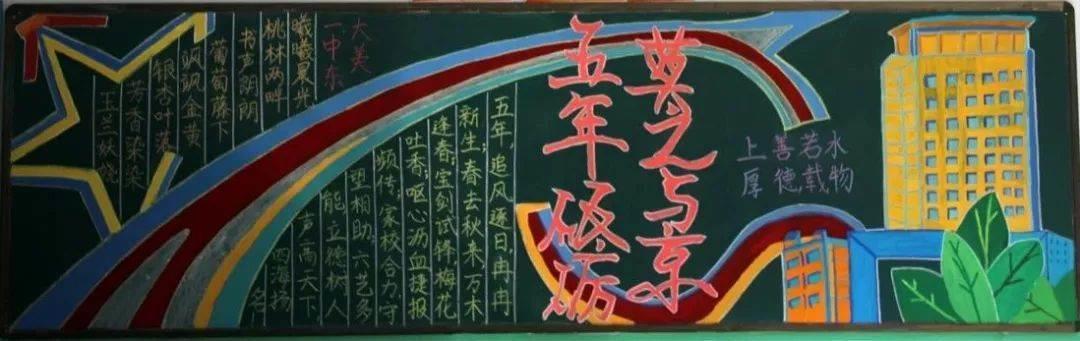 大美
一中东
曦曦晨光
桃林两畔
书声朗朗
葡萄藤下
飒飒金黄
银杏叶落
芳香染染
玉兰妖娆
莫之与京
五年砺
五年,追风逐日,冉冉
新生;春去秋来万木
逢春;宝剑试锋梅花
吐香;呕心沥血捷报
频传;家校合力,守
望相助,艺多
能立德树人
声高天下
四海扬
名
上善若水
厚德载物